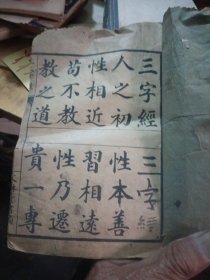 三字經　三字經
人之初　性本善
性相近　習相遠
苟不教　性乃遷
教之道　貴一專